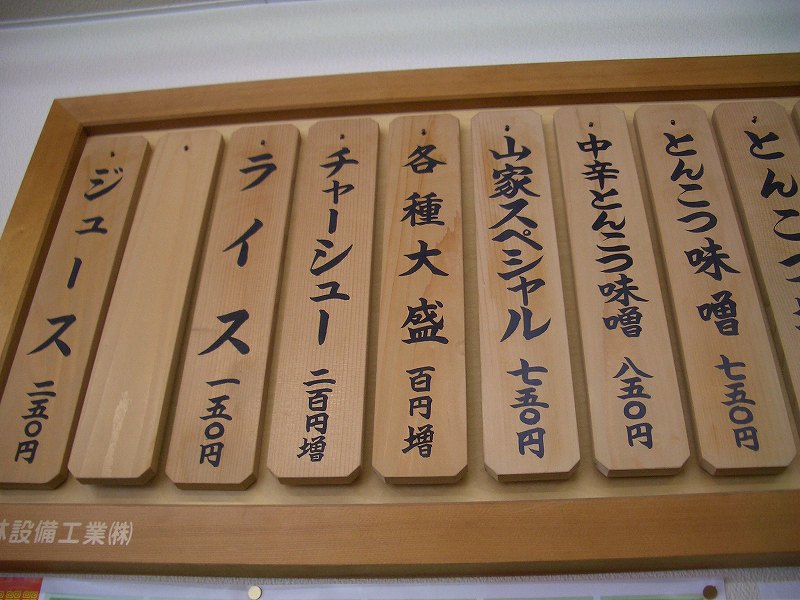 とんこつ
とんこつ味噌 七五〇円
中辛とんこつ味噌 八五〇円
山家スペシャル 七五〇円
各種大盛 百円増
チャーシュー 二百円増
ライス 一五〇円
ジュース 二五〇円
設備工業㈱